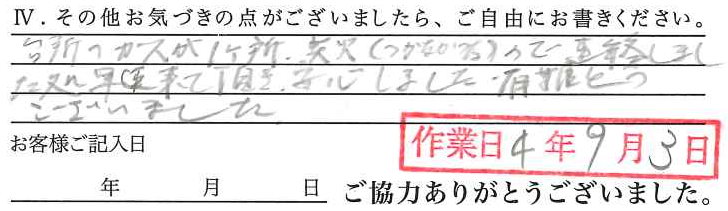 Ⅳ．その他お気づきの点がございましたら、ご自由にお書きください。
台所のガスが1ヶ所、点火(つかなかった)ので連絡しまし
た処早速来て頂き、安心しました。有難とう
ございました
お客様ご記入日
作業日4年9月3日
年 月 日 ご協力ありがとうございました。